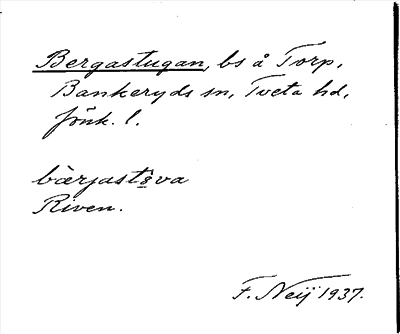 Bergastugan, bs å Torp,
Bankeryds sn, Tveta hd,
Jönk. l.
bærjastu̇va
Riven.
F. Neij 1937.